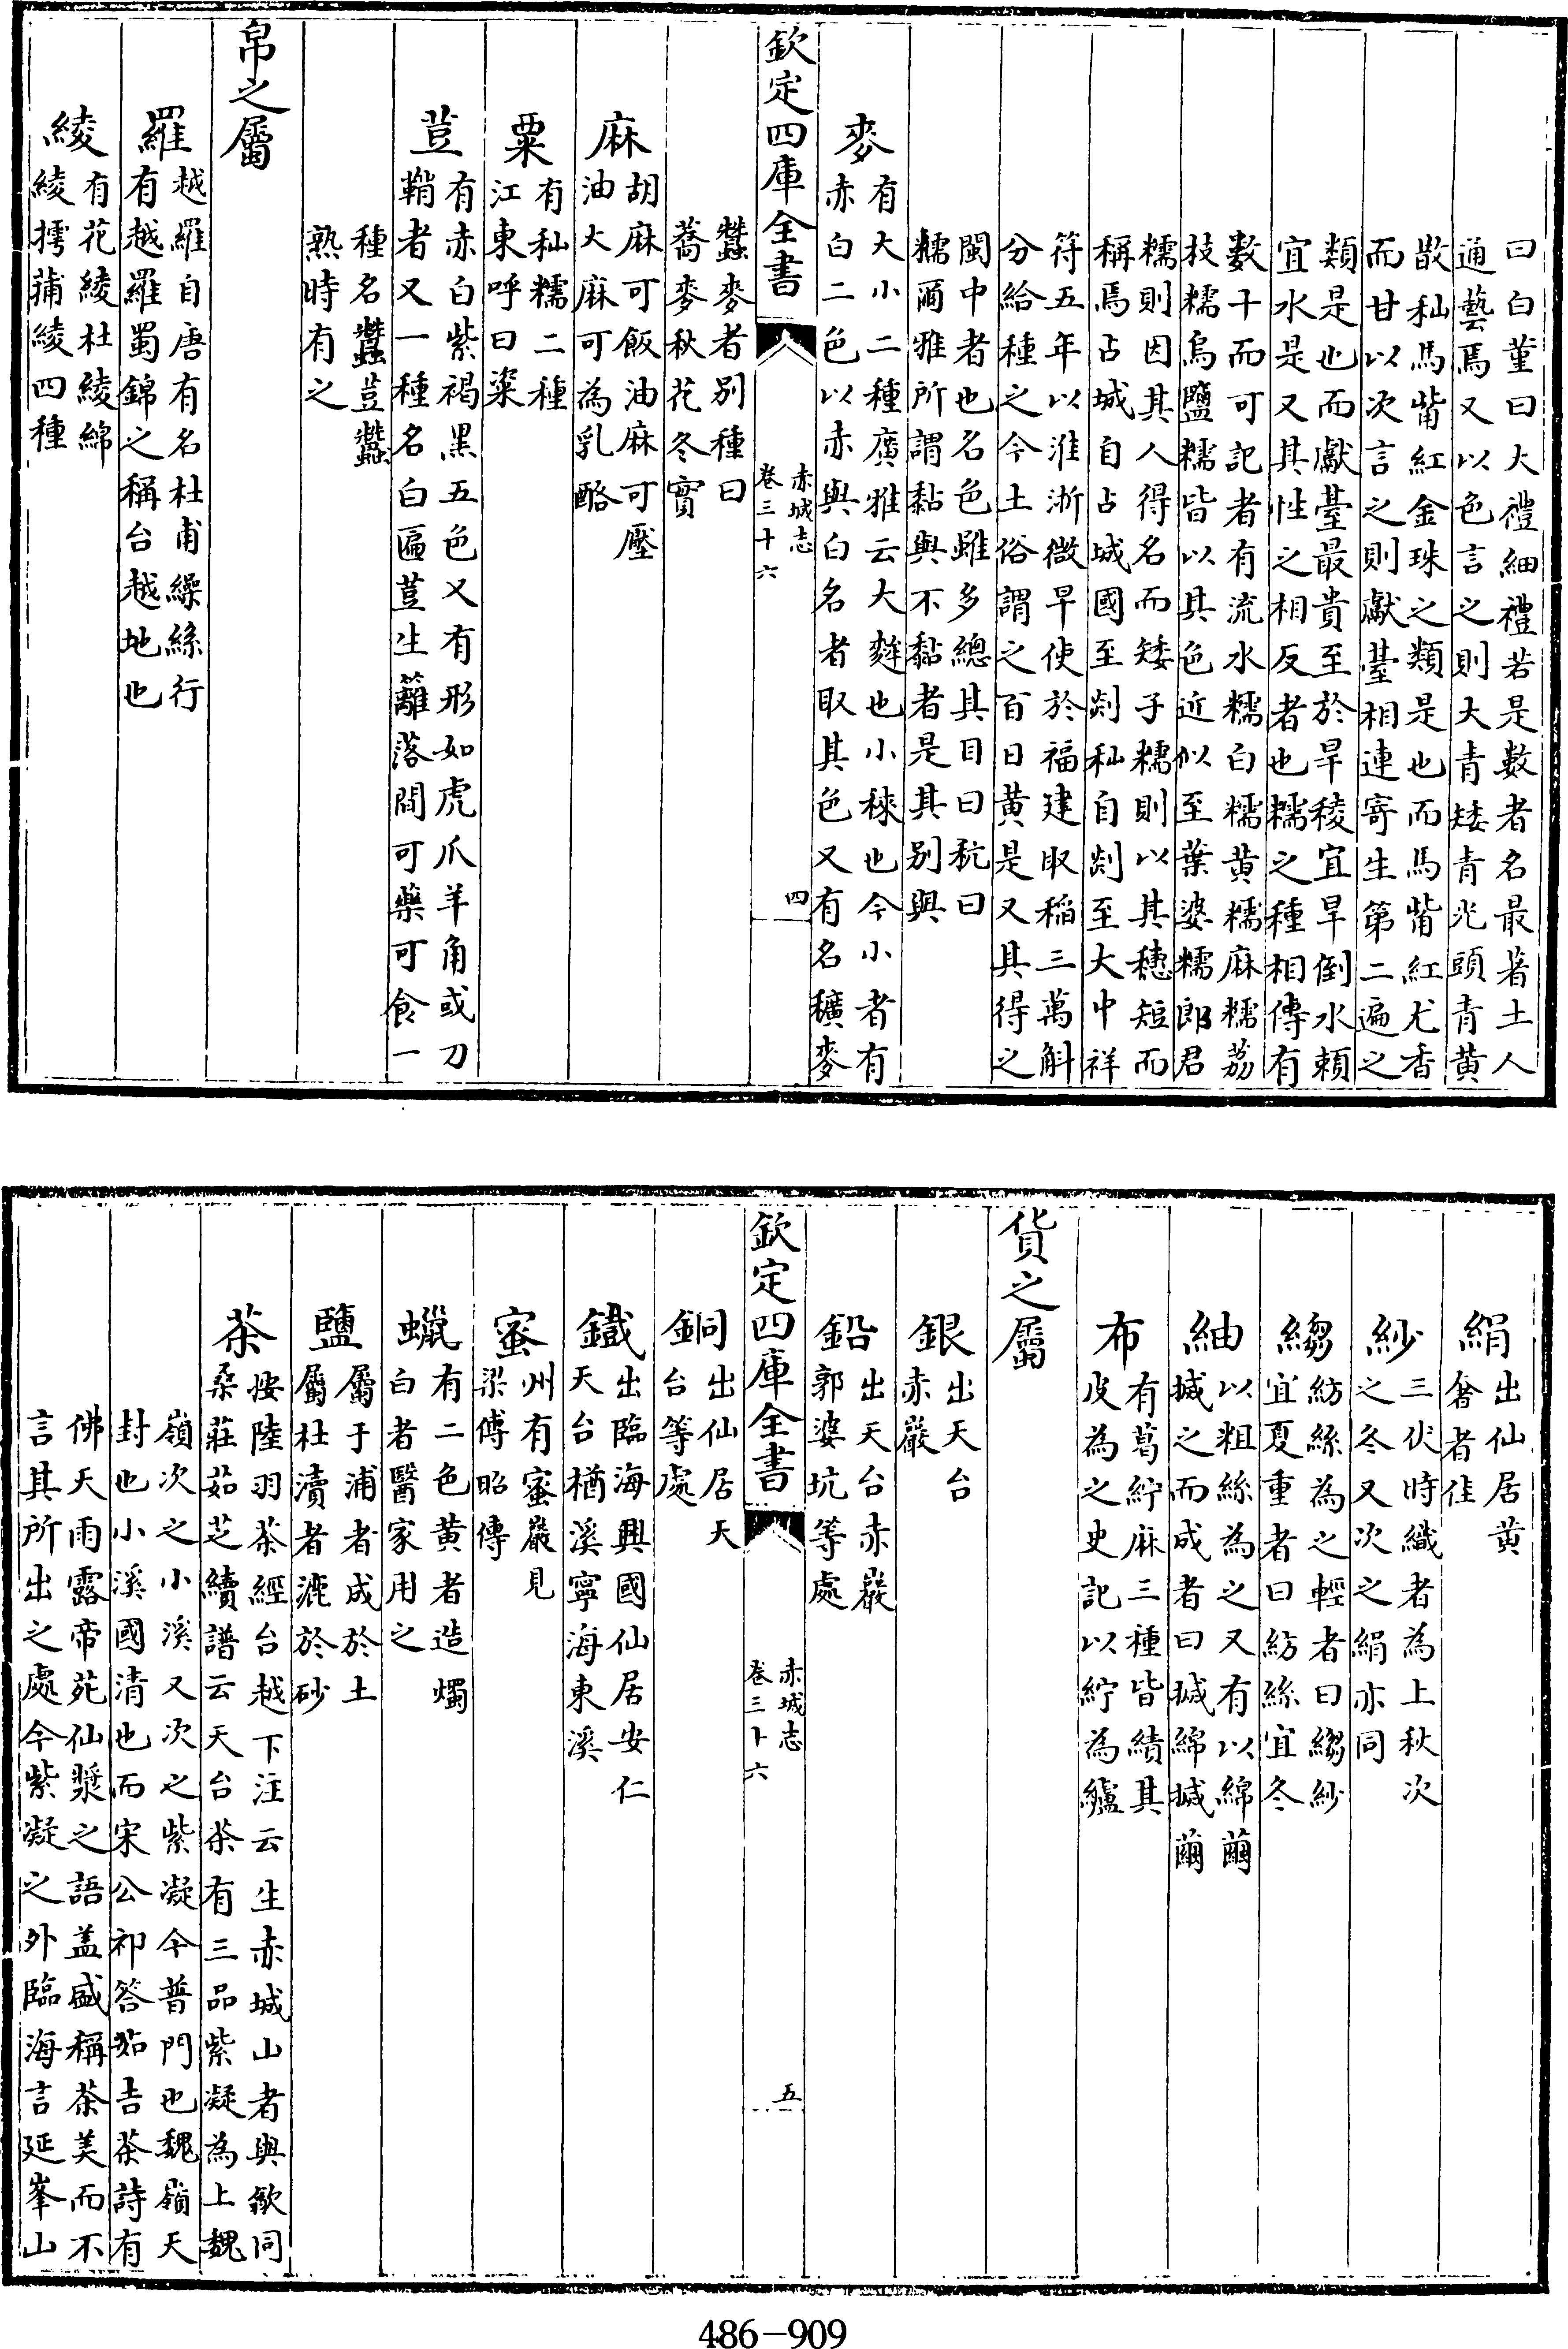 曰白董曰大禮細禮若是數者名最著土人
通藝焉又以色言之則大青矮青光頭青黄
散秈馬觜紅金珠之類是也而馬觜紅尤香
而甘以次言之則獻臺相連寄生第二遍之
類是也而獻臺最貴至於旱稜宜旱倒水頼
宜水是又其性之相反者也糯之種相傳有
數十而可記者有流水糯白糯黄糯麻糯荔
枝糯烏鹽糯皆以其色近似至葉婆糯郎君
糯則因其人得名而矮子糯則以其穗短而
稱焉占城自占城國至剡秈自剡至大中祥
符五年以淮浙微旱使於福建取稲三萬斛
分給種之今土俗謂之百日黄是又其得之
閩中者也名色雖多總其目曰秔曰
糯爾雅所謂黏與不黏者是其别與
麥
有大小二種廣雅云大麰也小䅘也今小者有
赤白二色以赤與白名者取其色又有名穬麥
欽定四庫全書
赤城志
卷三十六
四
蠶麥者别種曰
蕎麥秋花冬實
麻
胡麻可飯油麻可壓
油大麻可為乳酪
粟
有秈糯二種
江東呼曰粢
荳
有赤白紫褐黑五色又有形如虎爪羊角或刀
鞘者又一種名白匾荳生籬落間可藥可食一
種名蠶荳蠶
熟時有之
帛之屬
羅
越羅自唐有名杜甫繰絲行
有越羅蜀錦之稱台越地也
綾
有花綾杜綾綿
綾摴蒱綾四種
絹
出仙居黄
奢者佳
紗
三伏時織者為上秋次
之冬又次之絹亦同
縐
紡絲為之輕者曰縐紗
宜夏重者曰紡絲宜冬
紬
以粗絲為之又有以綿繭
搣之而成者曰搣綿搣繭
布
有葛紵麻三種皆績其
皮為之史記以紵為纑
貨之屬
銀
出天台
赤巖
鉛
出天台赤巖
郭婆坑等處
欽定四庫全書
赤城志
卷三十六
五
銅
出仙居天
台等處
鐵
出臨海興國仙居安仁
天台楢溪寧海東溪
蜜
州有蜜巖見
梁傅昭傳
蠟
有二色黄者造燭
白者醫家用之
鹽
屬于浦者成於土
屬杜瀆者漉於砂
茶
按陸羽茶經台越下注云生赤城山者與歙同
桑莊茹芝續譜云天台茶有三品紫凝為上魏
嶺次之小溪又次之紫凝今普門也魏嶺天
封也小溪國清也而宋公祁答如吉茶詩有
佛天雨露帝苑仙漿之語盖盛稱茶美而不
言其所出之處今紫凝之外臨海言延峯山
486-909